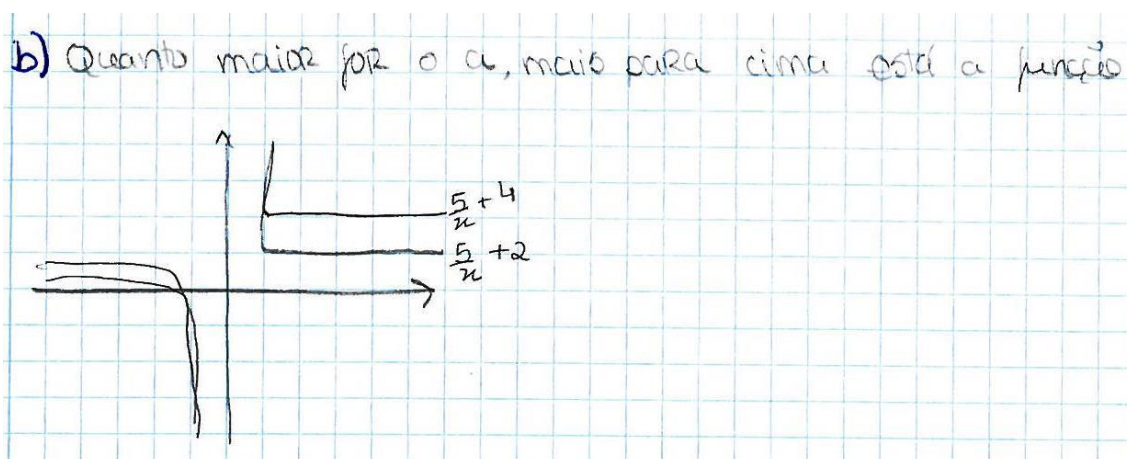 b) Quanto maior for o a, mais para cima está a função
5/x + 4
5/x + 2